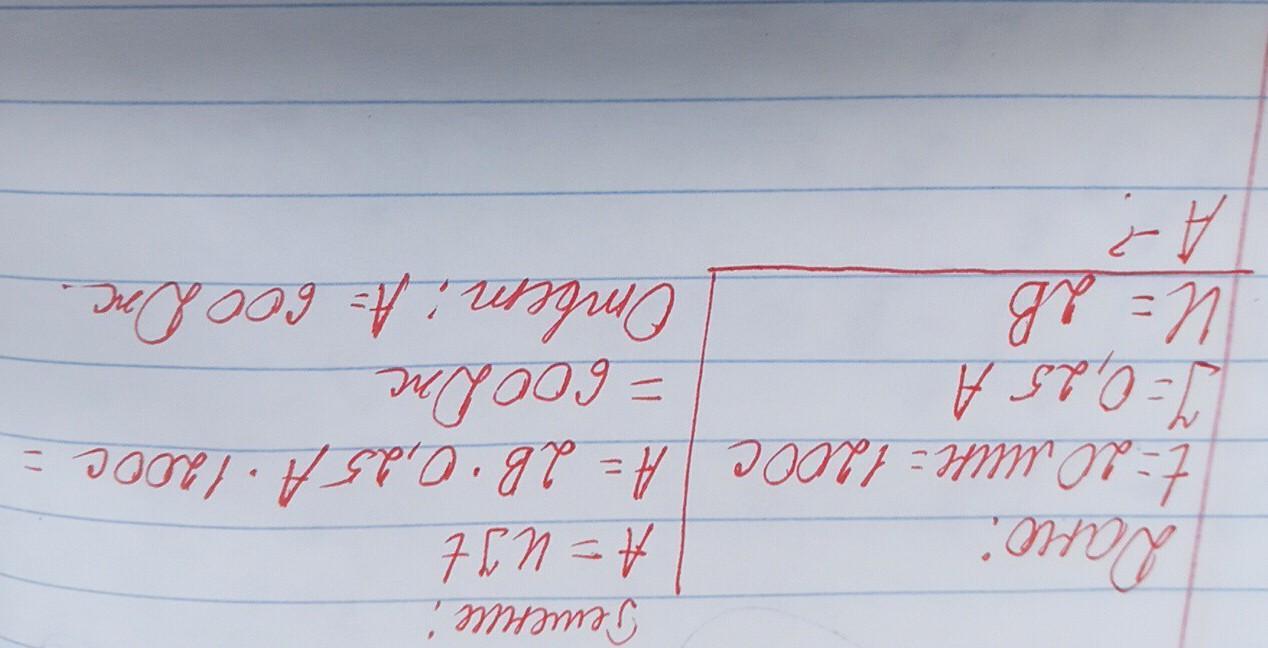 Дано:
t = 20 мин = 1200 с
I = 0,25 A
U = 2В
A - ?
Решение:
A = UIt
A = 2В · 0,25 A · 1200 с =
= 600 Дж
Ответ: A = 600 Дж.